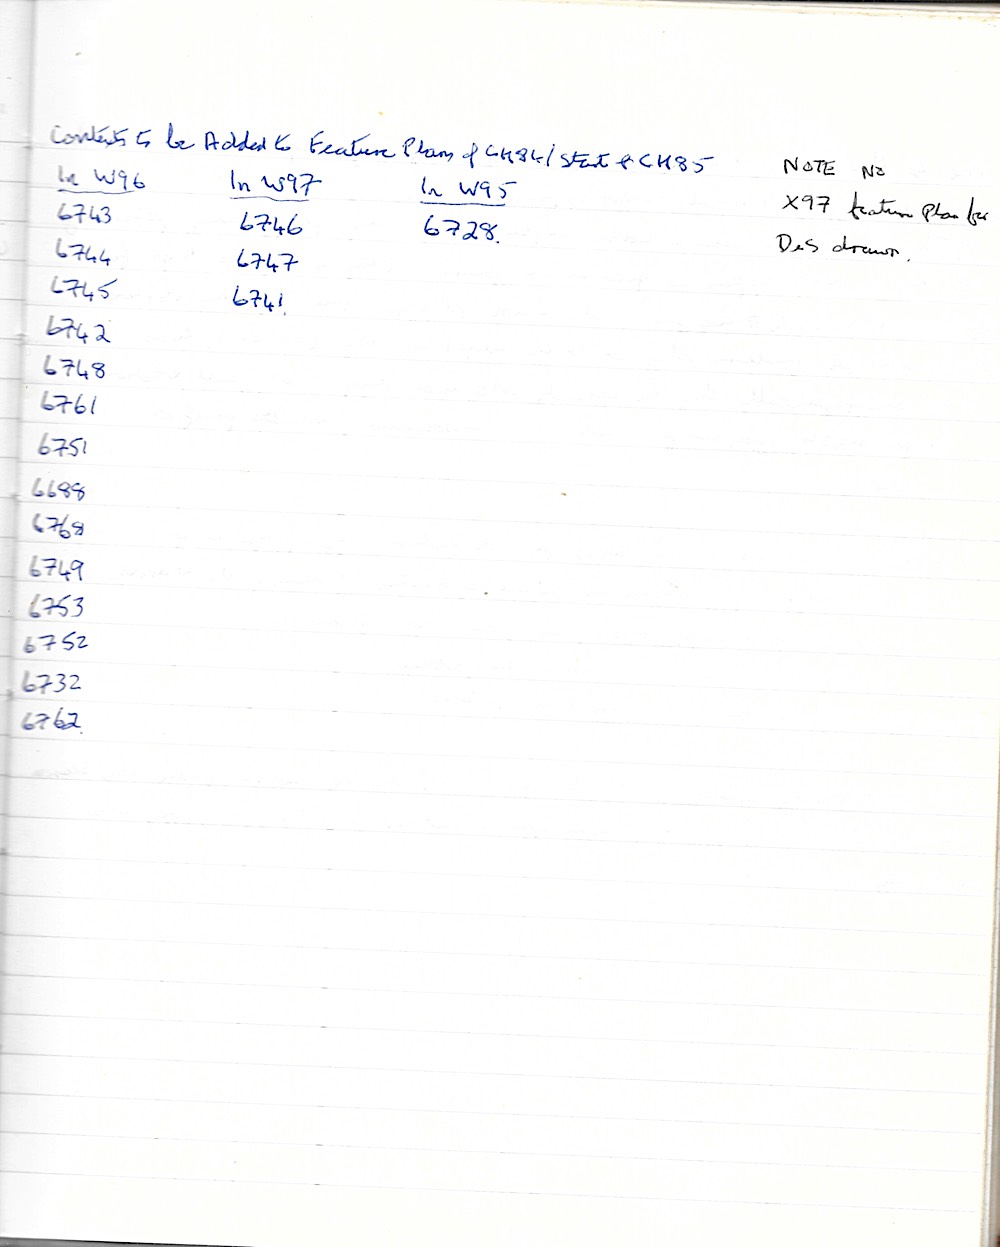 Contexts to be Added to Feature Plans of CH84/Start of CH85
In W96 In W97 In W95
6743 6746 6728.
6744 6747
6745 6741.
6742
6748
6761
6751
6688
6768
6749
6753
6752
6732
6762.
NOTE No
X97 feature plan for
DES drawn.